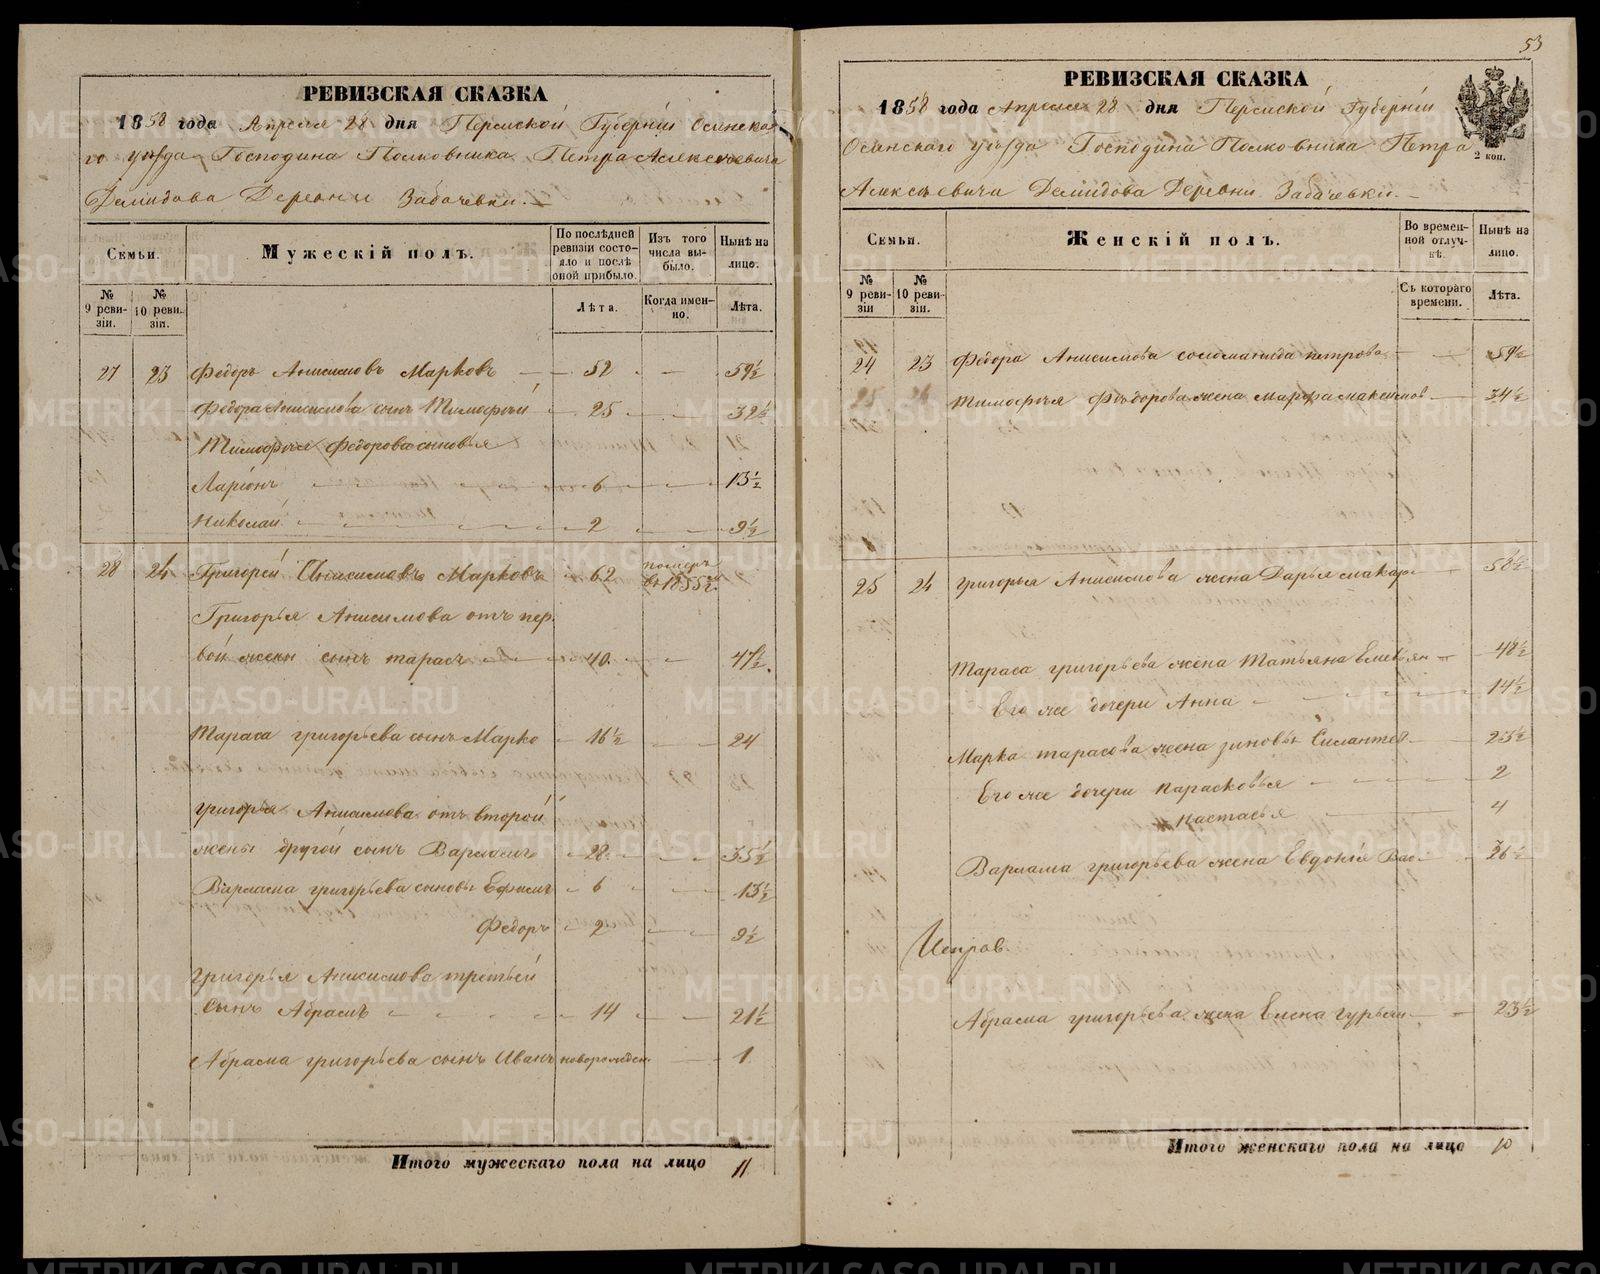 53
РЕВИЗСКАЯ СКАЗКА
1858 года Апреля 28 дня Пермской Губерніи Осинска-
го уѣзда Господина Полковника Петра Алексѣевича
Демидова Деревни Забачевки.
Семьи.
Мужескій полъ.
По послѣдней ревизіи состояло и послѣ оной прибыло.
Изъ того числа выбыло.
Нынѣ на лицо.
№ 9 ревизіи.
№ 10 ревизіи.
Лѣта.
Когда именно.
Лѣта.
27 23 Федоръ Анисимовъ Марковъ 52 59½
Федора Анисимова сынъ Тимофѣй 25 32½
Тимофѣя Федорова сыновья
Ларіонъ 6 13½
Николай 2 9½
28 24 Григорей Анисимовъ Марковъ 62 померъ въ 1855
Григорья Анисимова отъ пер-
вой жены сынъ тарасъ 40 47½
Тараса григорьева сынъ Марко 16½ 24
григорья Анисимова отъ второй
жены другой сынъ Варламъ 28 35½
Варлама григорьева сыновья Ефимъ 6 13½
Федоръ 2 9½
григорья Анисимова третьей
сынъ Абрамъ 14 21½
Абрама григорьева сынъ Иванъ новорожден. 1
Итого мужескаго пола на лицо 11
РЕВИЗСКАЯ СКАЗКА
1858 года Апреля 28 дня Пермской Губерніи
Осинскаго уѣзда Господина Полковника Петра
Алексѣевича Демидова Деревни Забачевки.
2 коп.
Семьи.
Женскій полъ.
Во временной отлучкѣ.
Нынѣ на лицо.
№ 9 ревизіи
№ 10 ревизіи.
Съ котораго времени.
Лѣта.
24 23 Федора Анисимова соломанида петрова 59½
Тимофѣя Фѣдорова жена Марфа максимов 34½
25 24 григорья Анисимова жена Дарья макаро 58½
Тараса григорьева жена Татьяна Емельян 48½
Его же дочери Анна 14½
Марка тарасова жена зиновья Силантев 23½
Его же дочери парасковья 2
настасья 4
Варлама григорьева жена Евдокія Вас 36½
Исправ.
Абрама григорьева жена Елена гурьян 23½
Итого женскаго пола на лицо 10
METRIKI.GASO-URAL.RU